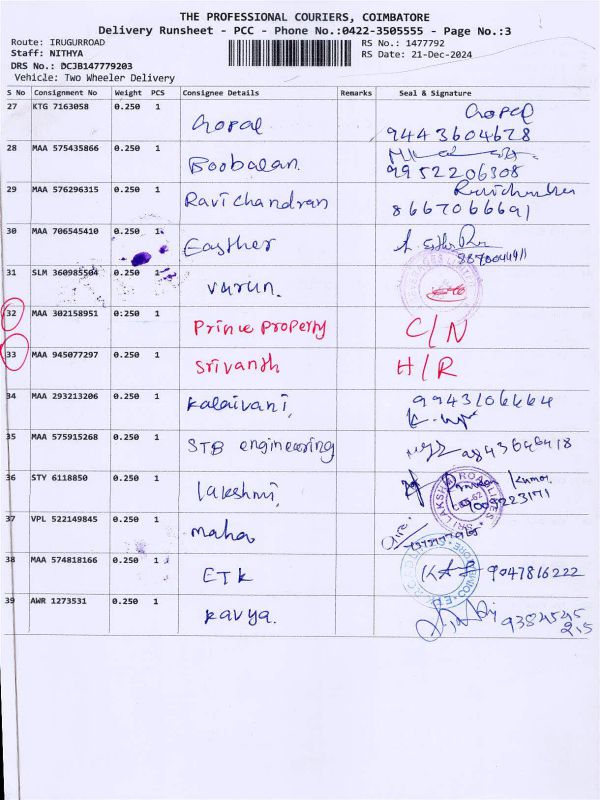 THE PROFESSIONAL COURIERS, COIMBATORE
Delivery Runsheet - PCC - Phone No.:0422-3505555 - Page No.:3
Route: IRUGURROAD RS No.: 1477792
Staff: NITHYA RS Date: 21-Dec-2024
DRS No.: DCJB147779203
Vehicle: Two Wheeler Delivery
S No Consignment No Weight PCS Consignee Details Remarks Seal & Signature
27 KTG 7163058 0.250 1 Gopal Gopal
9443604678
28 MAA 575435866 0.250 1 Boobalan. 9952206308
29 MAA 576296315 0.250 1 Ravichandran Ravichandran
8667066691
30 MAA 706545410 0.250 1 Easther
31 SLM 360985504 0.250 1 Varun.
32 MAA 302158951 0.250 1 Prince Property C/N
33 MAA 945077297 0.250 1 Srivanth H/R
34 MAA 293213206 0.250 1 Kalaivani, 9943106664
35 MAA 575915268 0.250 1 STB engineering
36 STY 6118850 0.250 1 Lakshmi, Kumar
37 VPL 522149845 0.250 1 Maha
38 MAA 574818166 0.250 1 ETK 9047816222
39 AWR 1273531 0.250 1 Kavya.